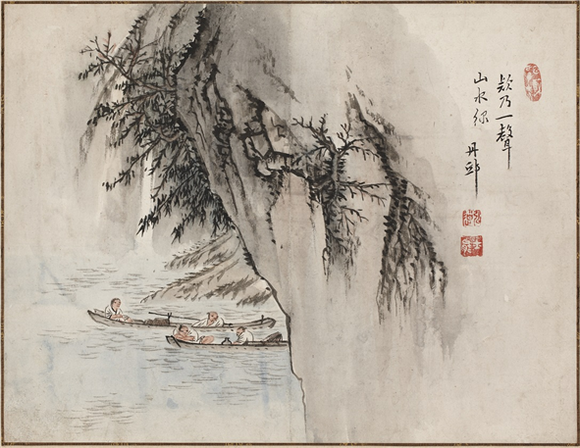 欸乃一聲
山水綠 丹邱